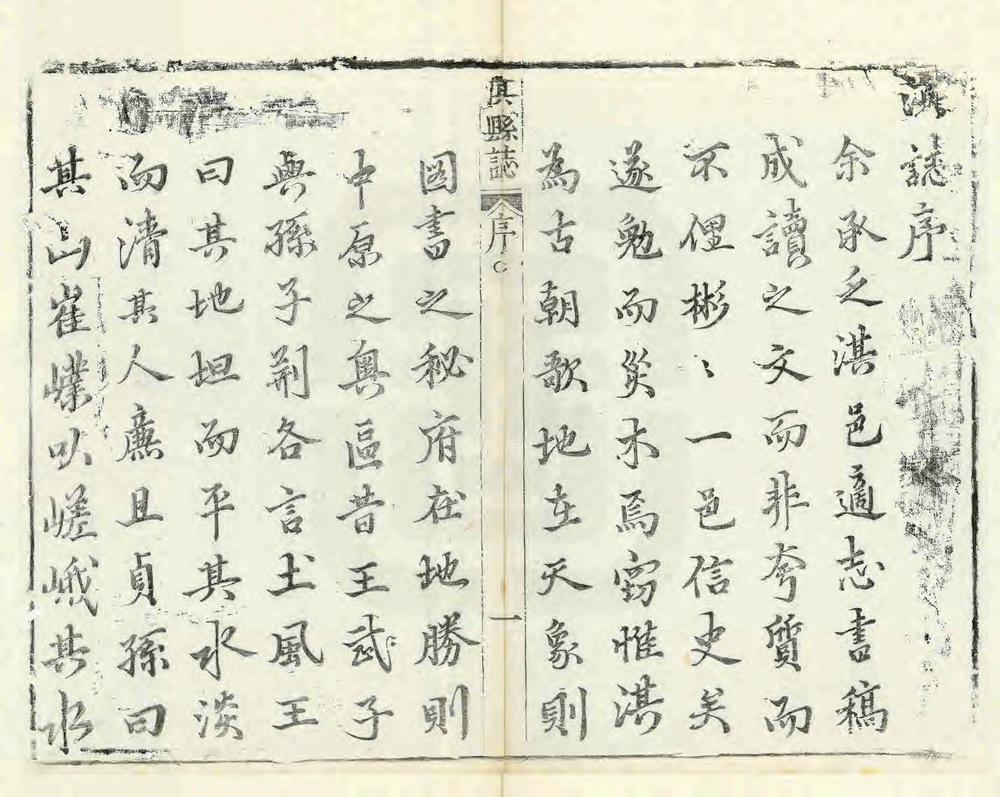 淇誌序
余承乏淇邑適志書稿
成讀之文而非夸質而
不俚彬〻一邑信史矣
遂勉而災木焉窃惟淇
為古朝歌地在天象則
淇縣誌 序 一
圖書之秘府在地勝則
中原之奥區昔王武子
與孫子荆各言土風王
曰其地坦而平其水淡
而清其人廉且貞孫曰
其山嶵㠎以嵯峨其水